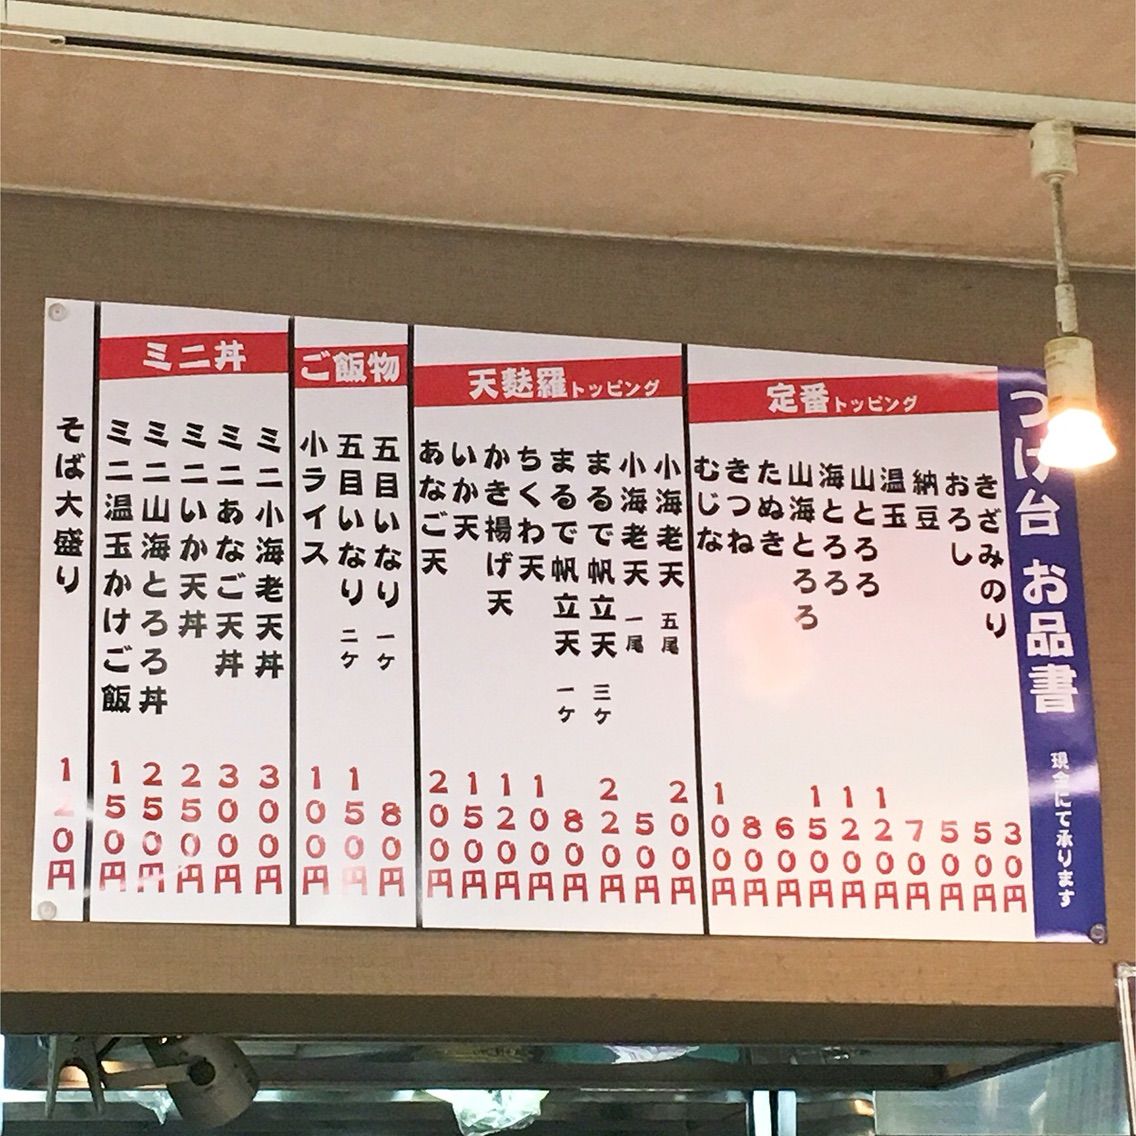 つけ台 お品書 現金にて承ります
定番トッピング
きざみのり 30円
おろし 50円
納豆 50円
温玉 70円
山とろろ 120円
海とろろ 120円
山海とろろ 150円
たぬき 60円
きつね 80円
むじな 100円
天麩羅トッピング
小海老天 五尾 200円
小海老天 一尾 50円
まるで帆立天 三ケ 220円
まるで帆立天 一ケ 80円
ちくわ天 100円
かき揚げ天 120円
いか天 150円
あなご天 200円
ご飯物
五目いなり 一ケ 80円
五目いなり 二ケ 150円
小ライス 100円
ミニ丼
ミニ小海老天丼 300円
ミニあなご天丼 300円
ミニいか天丼 250円
ミニ山海とろろ丼 250円
ミニ温玉かけご飯 150円
そば大盛り 120円